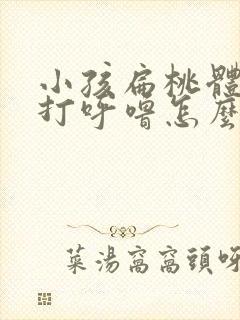 小孩扁桃體
打呼嚕怎麼
菜湯窩窩頭呀